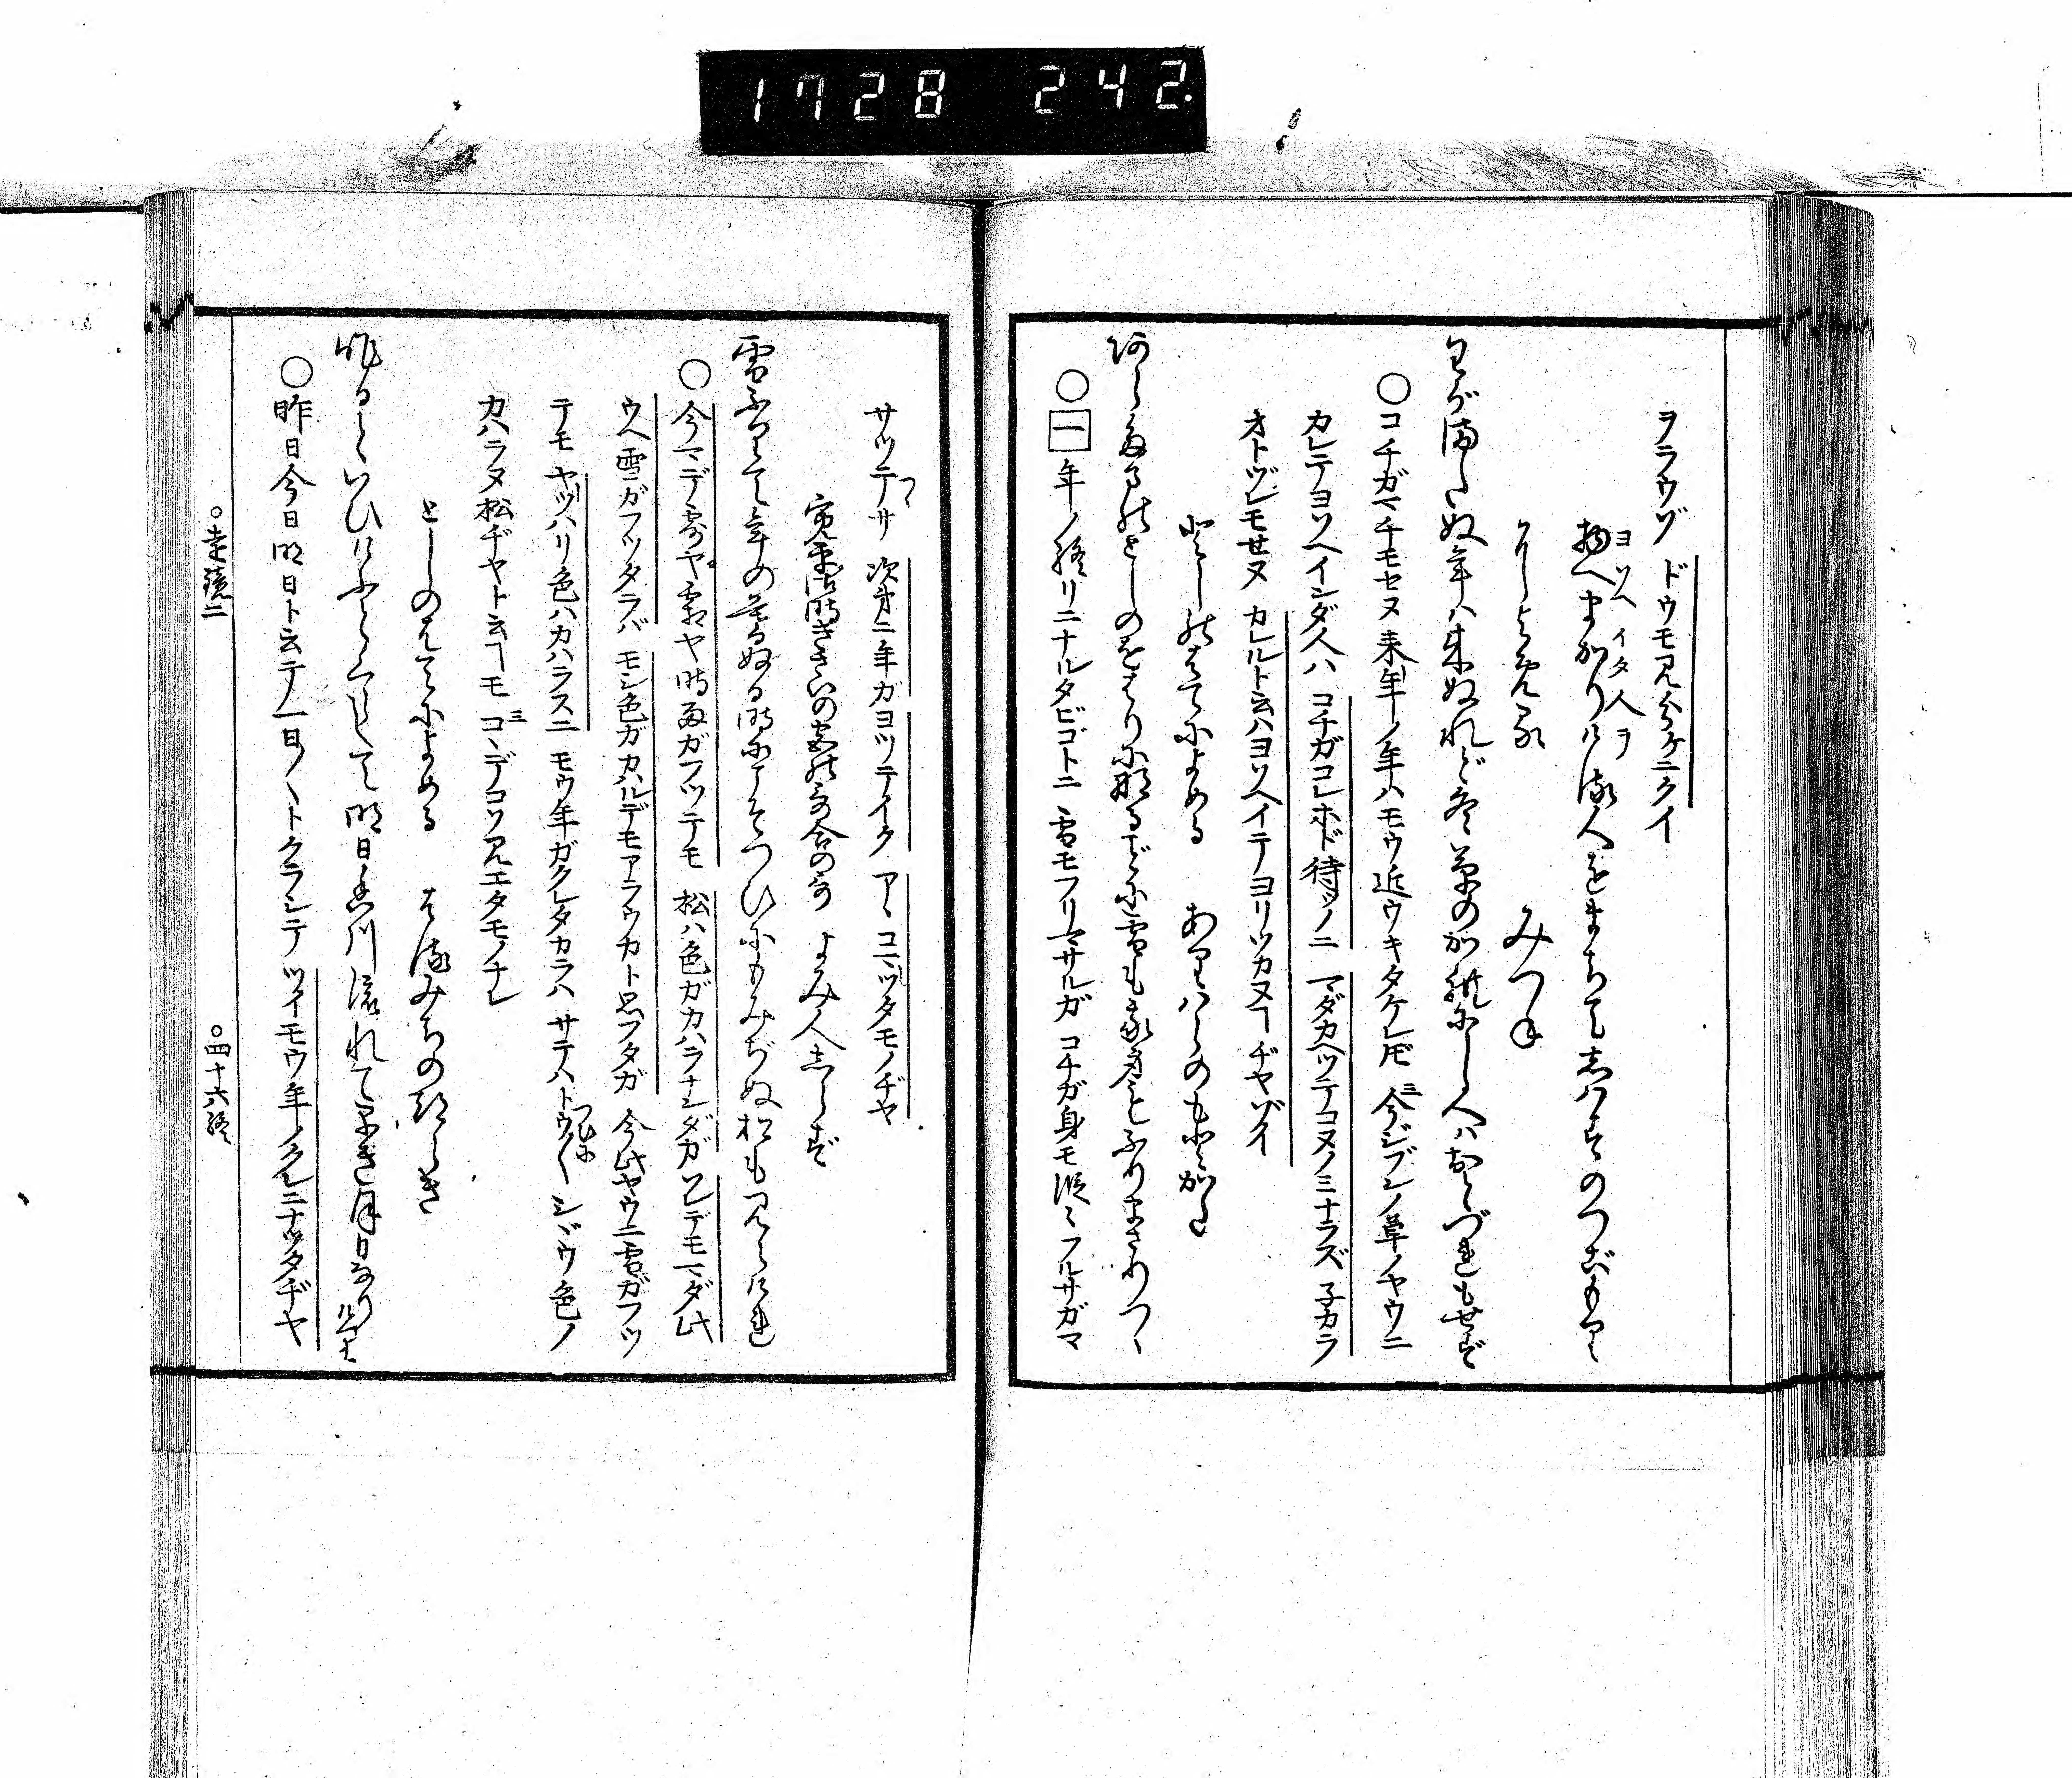 ヲラウゾ ドウモ見分ケニクイ
物へまかりける人をまちてしはすのつごもりに
ヨソヘイタ人ヲ
よめる みつね
わが待たぬ年は来ぬれど冬草のかれにし人はおとづれもせず
○コチガマチモセヌ来年ノ年ハモウ近ウキタケレドモ 今ジブンノ草ノヤウニ
カレテヨソヘインダ人ハ コチガコレホド待ツノニ マダカヘツテコヌノミナラズ 子カラ
オトヅレモせヌ カレルト云ハヨソヘイテヨリツカヌヿヂヤゾイ
としのはてによめる ありはらのもとかた
あらたまのとしのをはりになるごとに雪も我身もふりまさりつゝ
○一 年ノ終リニナルタビゴトニ 雪モフリマサルガ コチガ身モ段々フルサガマ
サツテサ 次第ニ年ガヨツテイク アヽコマツタモノヂヤ
寛平御時きさいの宮の哥合の哥 よみ人しらず
雪ふりて年の暮ぬる時にこそつひにもみぢぬ松も見えけれ
○今マデ露ヤ霜ヤ時雨ガフツテモ 松ハ色ガカハラナンダガ ソレデモマダ此
ウヘ雪ガフツタラバ モシ色ガカハルデモアラウカト思フタガ 今此ヤウニ雪ガフツ
テモ ヤツハリ色ハカハラスニ モウ年ガクレタカラハ サテハトウ〳〵シジウ色ノ
カハラヌ松ヂヤト云ヿモ コヽデコソ見エタモノナレ
としのはてによめる はるみちのつらき
昨日といひけふとくらして明日香川流れて早き月日なりけり
○昨日今日明日ト云テ 一日〳〵トクラシテ ツイモウ年ノクレニナツタヂヤ
○遠鏡二
○四十六終
1728 242.